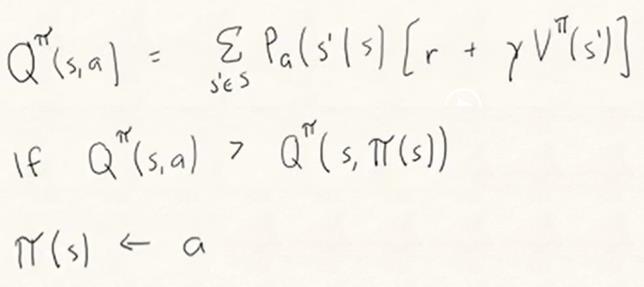 Q^π(s,a) = Σ_{s'∈S} P_a(s'|s) [r + γ V^π(s')]
If Q^π(s,a) > Q^π(s, π(s))
π(s) ← a